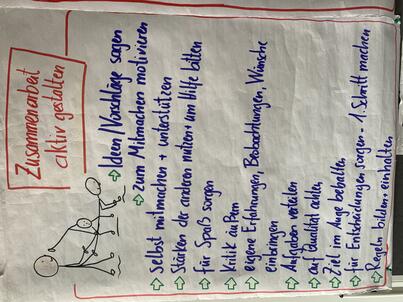 Zusammenarbeit
aktiv gestalten
Ideen/Vorschläge sagen
zum Mitmachen motivieren
Selbst mitmachen + unterstützen
Stärken der anderen nutzen + um Hilfe bitten
für Spaß sorgen
Kritik äußern
eigene Erfahrungen, Beobachtungen, Wünsche
einbringen
Aufgaben verteilen
auf Qualität achten
Ziel im Auge behalten
für Entscheidungen sorgen - 1. Schritt machen
Regeln bilden + einhalten